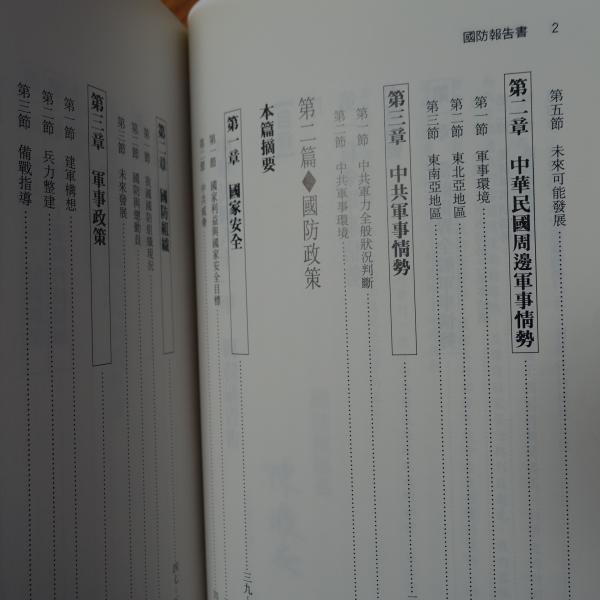 國防報告書 2
第五節 未來可能發展
第二章 中華民國周邊軍事情勢
第一節 軍事環境
第二節 東北亞地區
第三節 東南亞地區
第三章 中共軍事情勢
第一節 中共軍力全般狀況判斷
第二節 中共軍事環境
第二篇◆國防政策
本篇摘要
三九
第一章 國家安全
第一節 國家利益與國家安全目標
第二節 中共威脅
第二章 國防組織
第一節 我國國防組織現況
第二節 國防與總動員
第三節 未來發展
四七
第三章 軍事政策
第一節 建軍構想
第二節 兵力整建
第三節 備戰指導